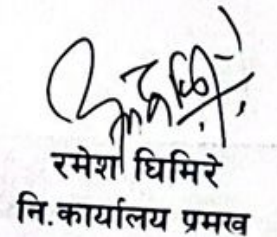 रमेश घिमिरे
नि.कार्यालय प्रमख